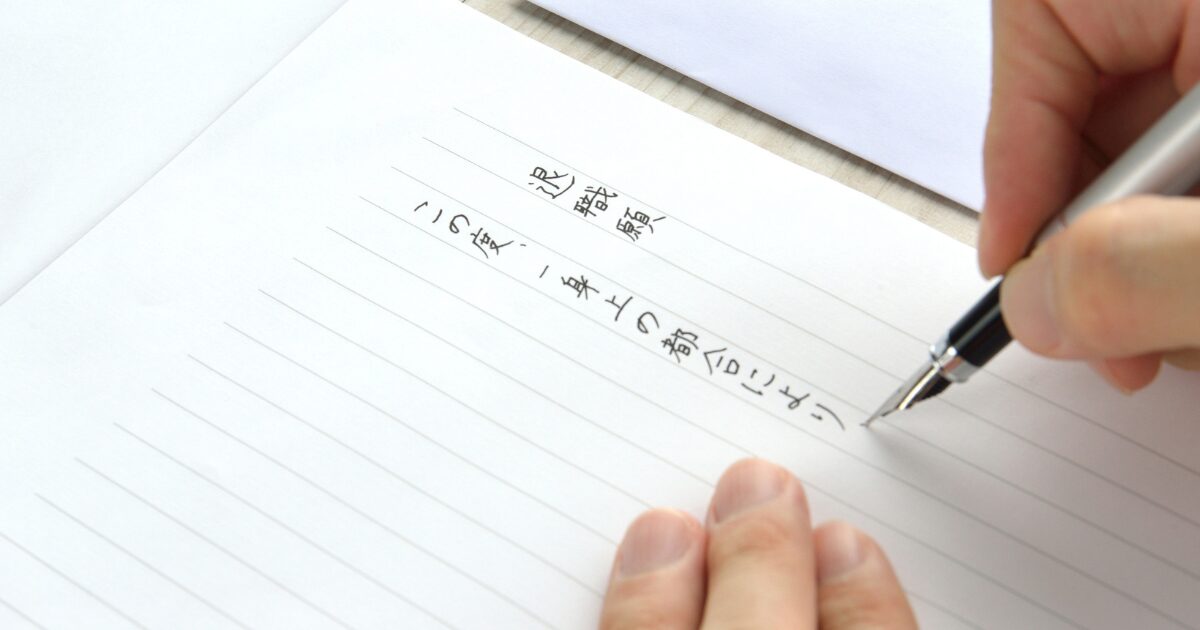 退職願
この度、一身上の都合により